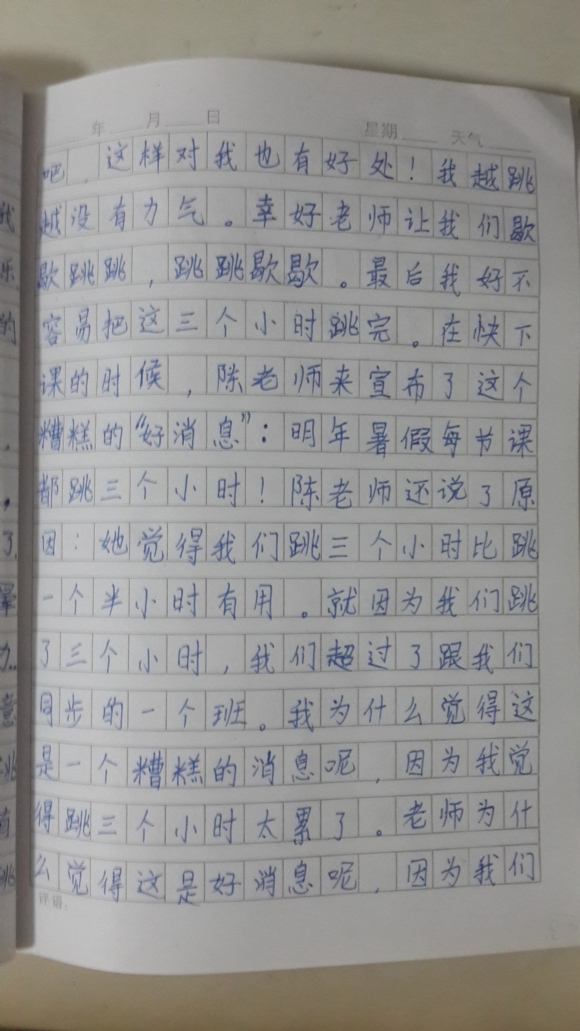 年 月 日 星期 天气
吧，这样对我也有好处！我越跳
越没有力气。幸好老师让我们歇
歇跳跳，跳跳歇歇。最后我好不
容易把这三个小时跳完。在快下
课的时候，陈老师来宣布了这个
糟糕的“好消息”：明年暑假每节课
都跳三个小时！陈老师还说了原
因：她觉得我们跳三个小时比跳
一个半小时有用。就因为我们跳
了三个小时，我们超过了跟我们
同步的一个班。我为什么觉得这
是一个糟糕的消息呢，因为我觉
得跳三个小时太累了。老师为什
么觉得这是好消息呢，因为我们
评语：